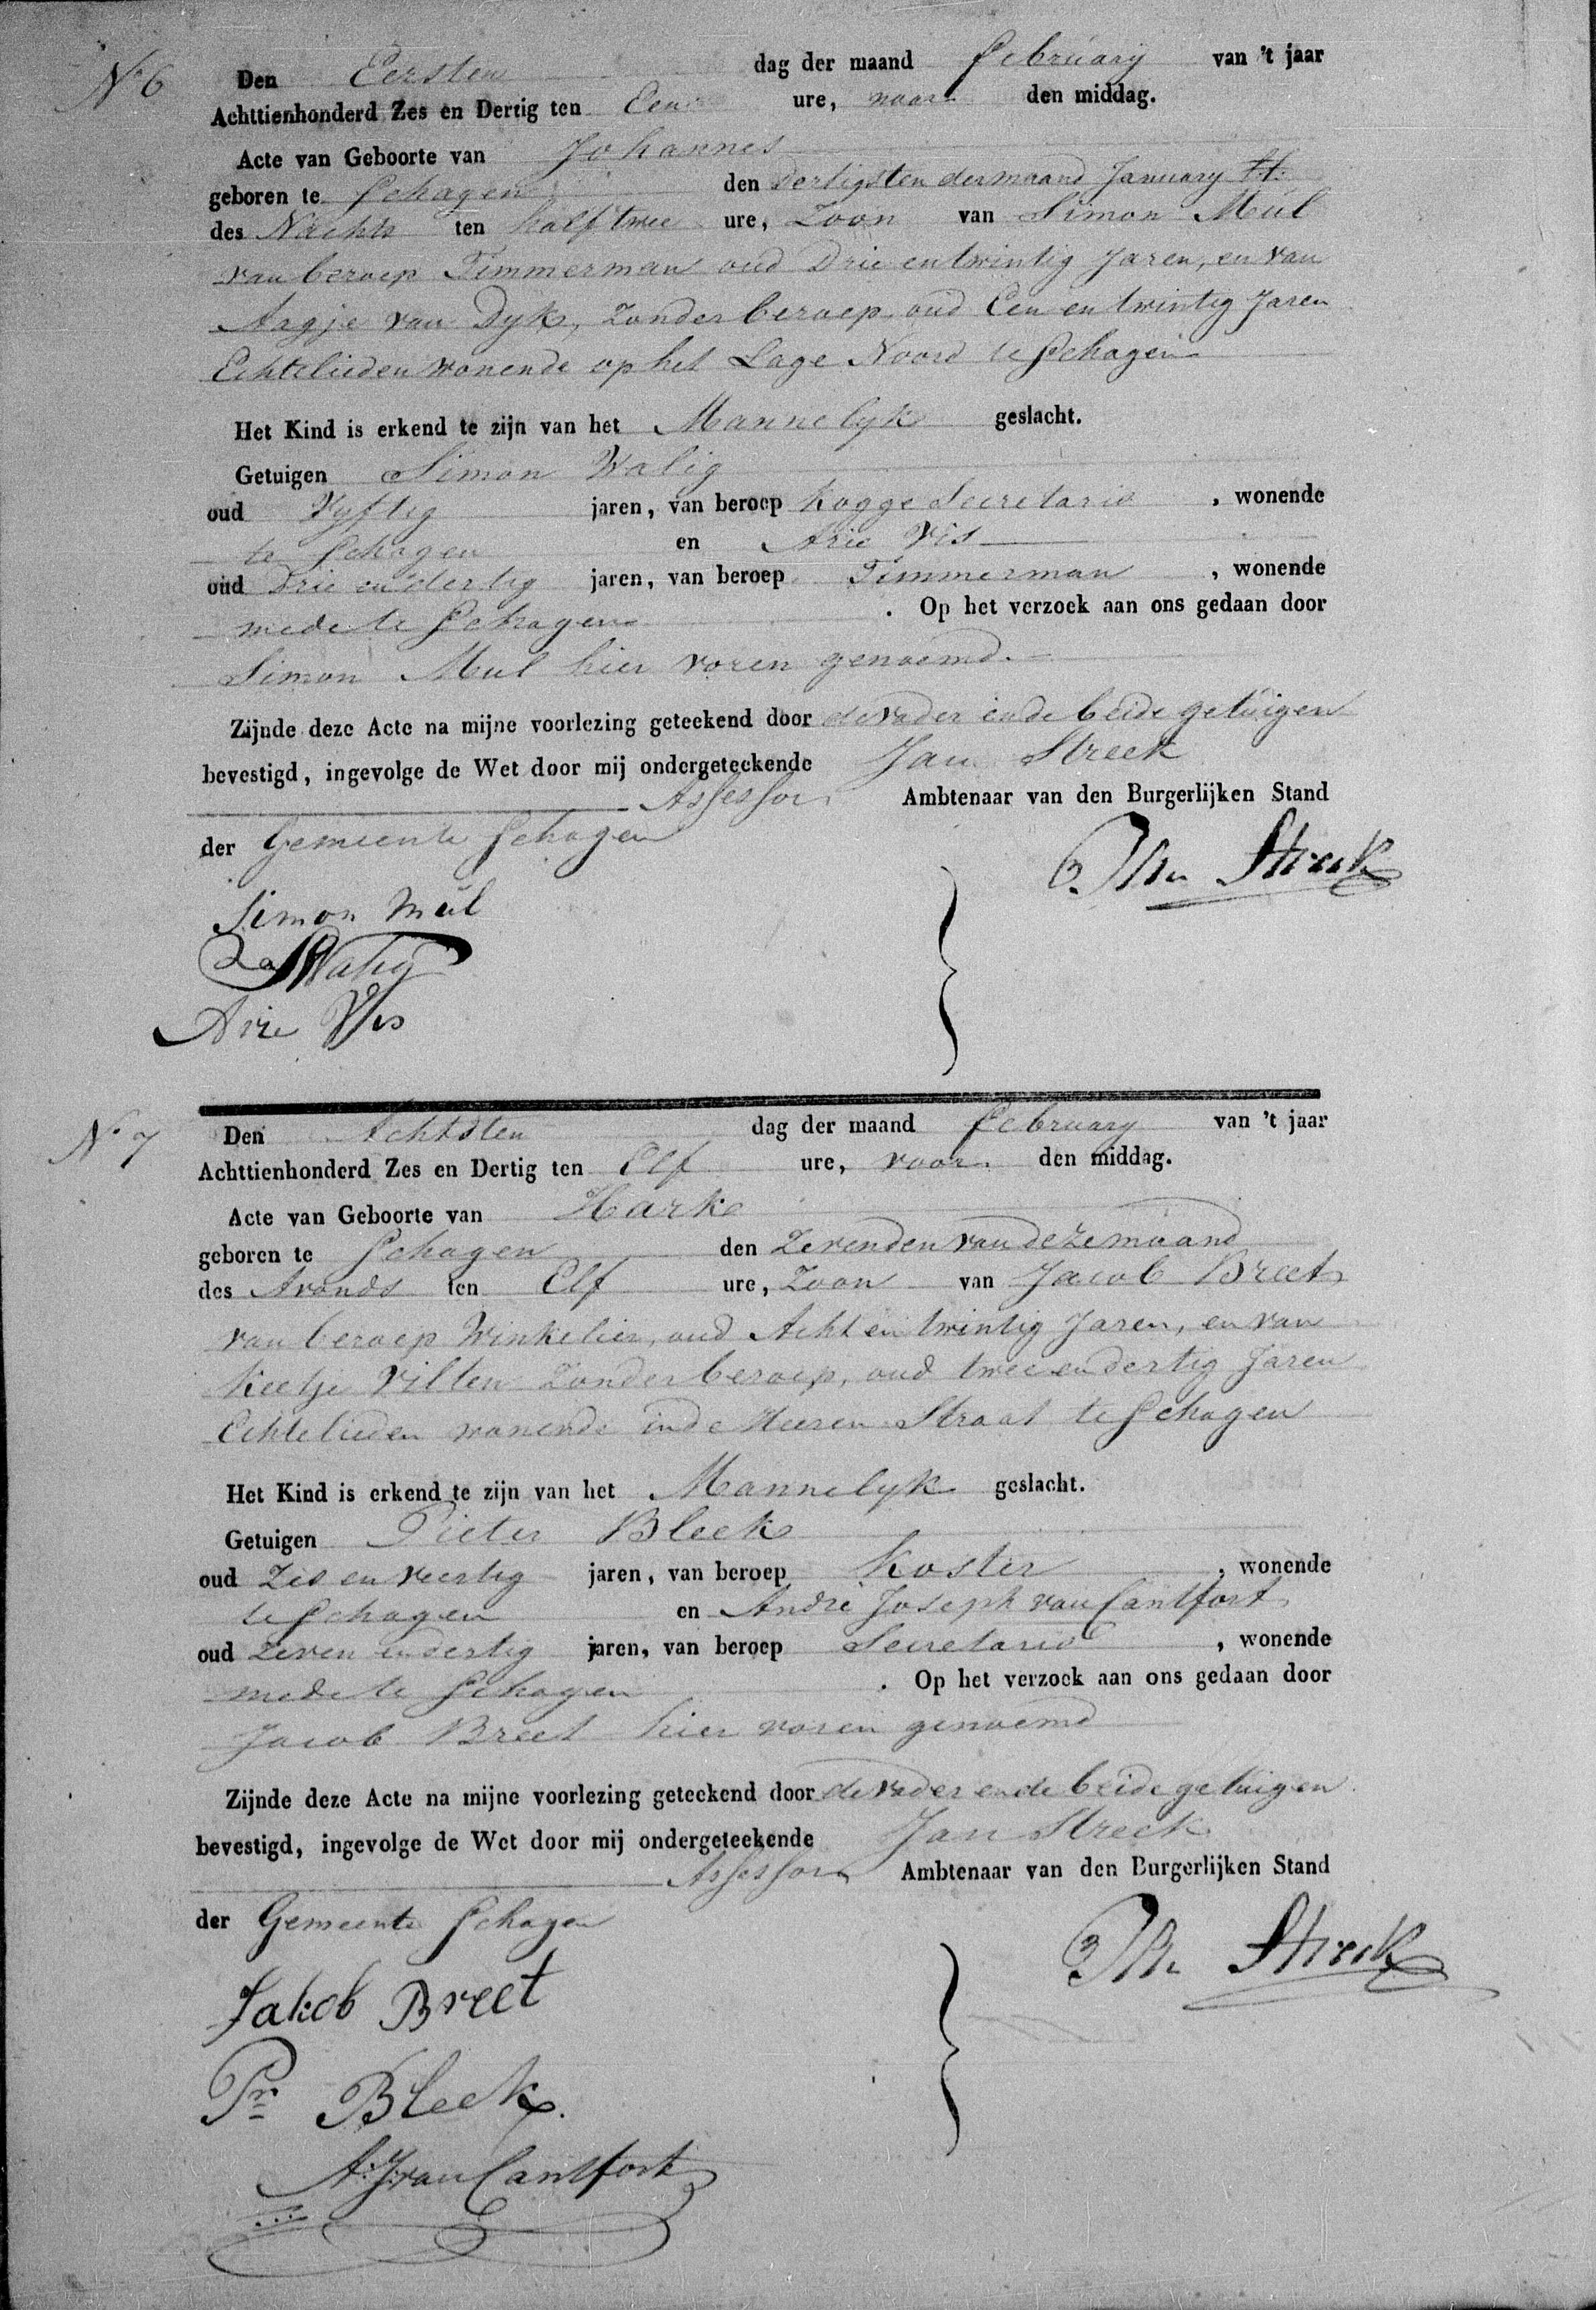 No 6
Den Eersten dag der maand February van 't jaar
Achttienhonderd Zes en Dertig ten Een ure, naar den middag.
Acte van Geboorte van Johannes
geboren te Schagen den Dertigsten der maand January ll.
des Nachts ten half twee ure, Zoon van Simon Mul
van beroep Timmerman oud Drie en twintig Jaren, en van
Aagje van Dyk, Zonder beroep oud Een en twintig Jaren
Echtelieden wonende op het Lage Noord te Schagen
Het Kind is erkend te zijn van het Mannelyk geslacht.
Getuigen Simon Walig
oud Vyftig jaren, van beroep Kogge Secretaris, wonende
te Schagen en Arie Vis
oud Drie en dertig jaren, van beroep Timmerman, wonende
mede te Schagen. Op het verzoek aan ons gedaan door
Simon Mul hier voren genoemd.
Zijnde deze Acte na mijne voorlezing geteekend door de vader en de beide getuigen
bevestigd, ingevolge de Wet door mij ondergeteekende Jan Streek
Assessor Ambtenaar van den Burgerlijken Stand
der Gemeente Schagen
Streek
Simon Mul
Walig
Arie Vis
No 7
Den Achtsten dag der maand February van 't jaar
Achttienhonderd Zes en Dertig ten Elf ure, voor den middag.
Acte van Geboorte van Hark
geboren te Schagen den Zevenden van deze maand
des Avonds ten Elf ure, Zoon van Jacob Breet
van beroep Winkelier, oud Acht en twintig Jaren, en van
Keetje Vilten Zonder beroep, oud twee en dertig Jaren
Echtelieden wonende in de Heeren Straat te Schagen
Het Kind is erkend te zijn van het Mannelyk geslacht.
Getuigen Pieter Bleek
oud Zes en veertig jaren, van beroep Koster, wonende
te Schagen en André Joseph van Cantfort
oud Zeven en dertig jaren, van beroep Secretaris, wonende
mede te Schagen. Op het verzoek aan ons gedaan door
Jacob Breet hier voren genoemd
Zijnde deze Acte na mijne voorlezing geteekend door de vader en de beide getuigen
bevestigd, ingevolge de Wet door mij ondergeteekende Jan Streek
Assessor Ambtenaar van den Burgerlijken Stand
der Gemeente Schagen
Streek
Jakob Breet
Pr Bleek.
A: J: van Cantfort